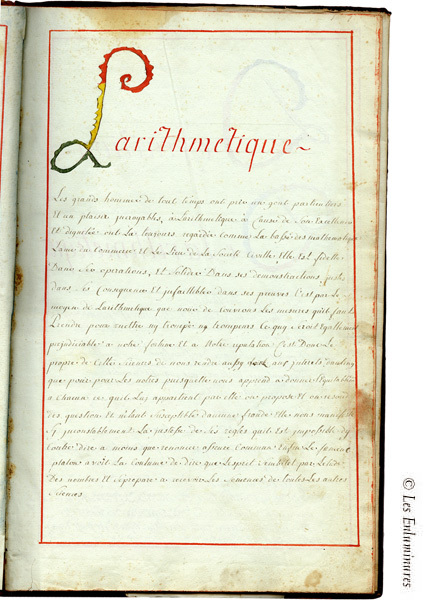 Larithmetique
Les grands hommes de tout temps ont pris un gout particulier
Et un plaisir incroyables, à Larithmetique à Cause de Son Excellence
Et dequelle ont La toujours regardée comme La base des mathematique
Lame du Commerce Et Le Lien de La Societé Civille Elle Est fidelle
Dans Ses operations, Et Solide Dans ses demonstrations, juste
dans ses Consequences Et jnfaillible dans ses preuves C'est par Le
moyen de Larithmetique que nous de couvrons Les mesures quil faut
Prendre pour nestre ny trompés ny trompeurs Ce quy Seroit Egallement
prejudiciable à notre fortune Et à Notre reputation C'est Donc Le
propre de Cette Science de nous rendre aussy aux jnterets
que pour Les notres puisquelle nous apprend a donner
a Chacun ce quil Luy appartient par elle on propose Et on resoud
des question Et nestant Susceptible daucune fraude Elle nous
jnconstablement La justesse de Ses regles quil Est jmpossible dy
contre dire a moins que renoncer Enfin Le fameux
platon avoit La Coutume de dire que Lesprit par Letude
Des nombres Et Seprepare a recevoir Les Semences de toutes Les autres
Sciences
© Les Enluminures